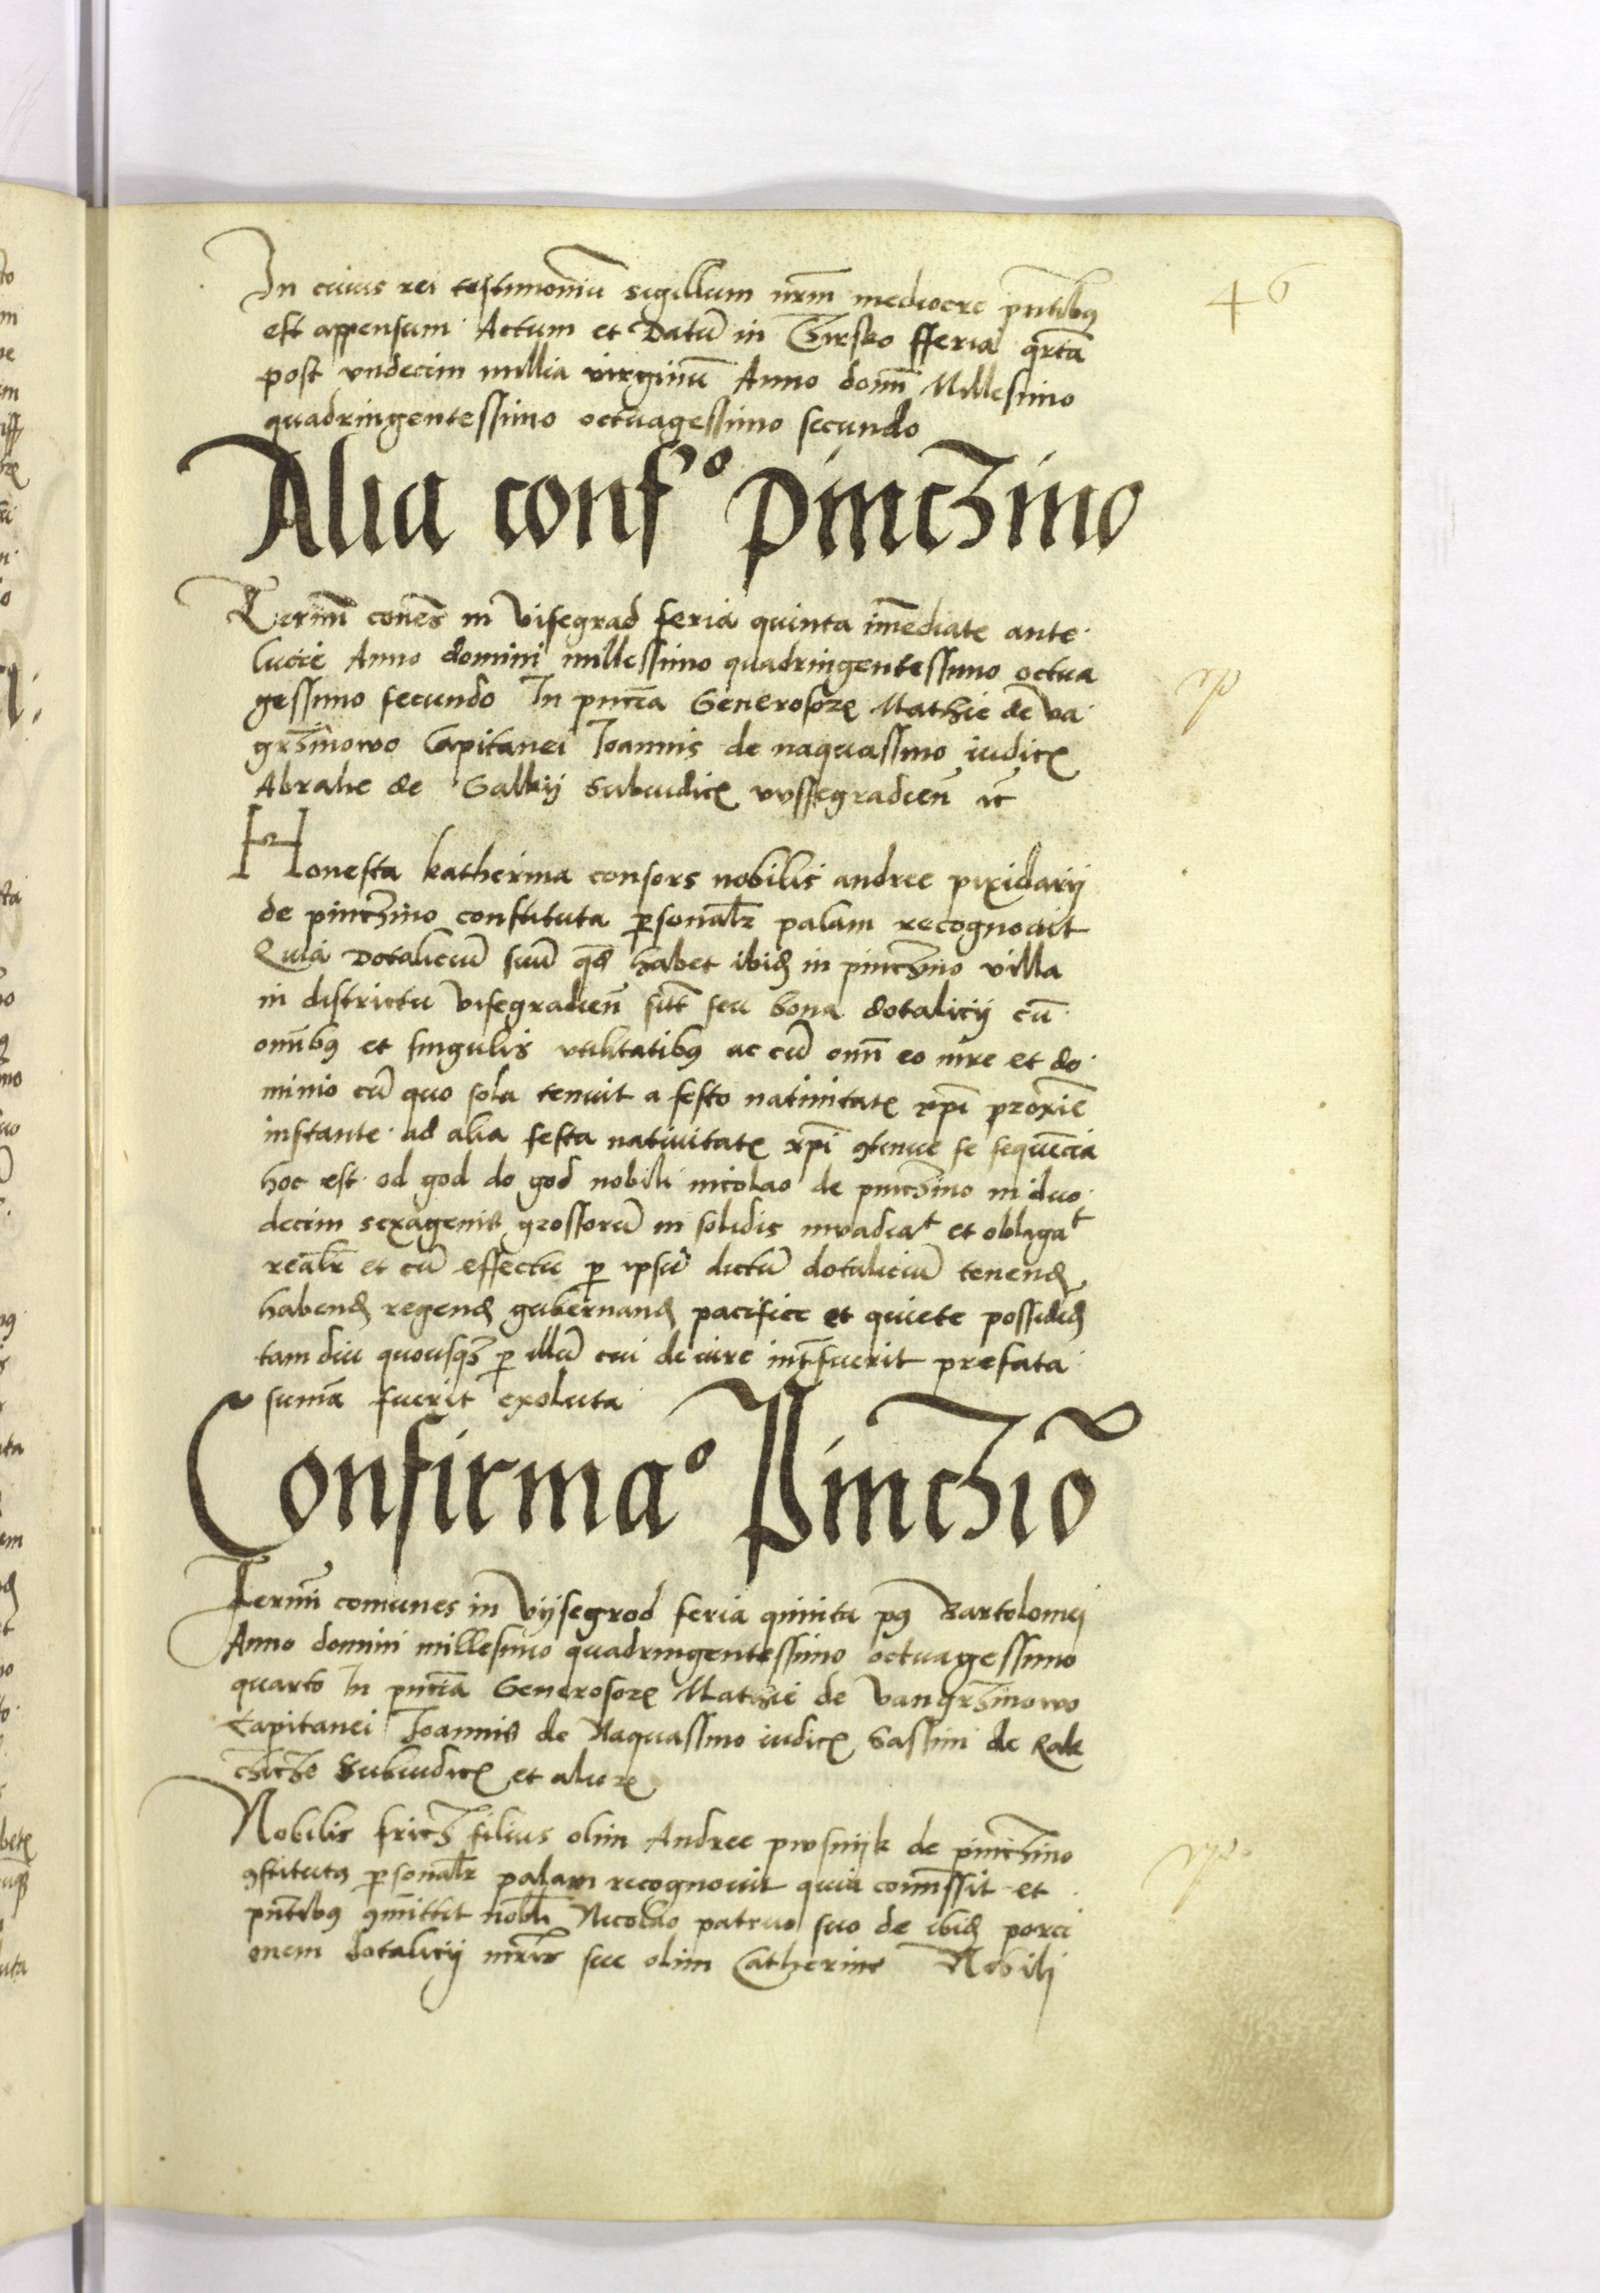 In cuius rei testimoniū sigillum nr̄m mediocre pn̄tibꝰ
46
est appensum Actum et Datū in Czirsko fferia qr̄ta
post vndecim millia virginū Anno domī Millesimo
quadringentessimo octuagessimo secundo
Alia confº pinczino
Termī cōnes in Visegrad feria quinta im̄ediate ante
lucie Anno domini millessimo quadringentessimo octua
gessimo secundo In pn̄cia Generosoꝝ Mathie de Va
grzinowo Capitanei Joannis de naquassino iudicꝭ
Abrahe de Galkij Subiudicꝭ vyssegradien̄ ꝛc̄
Honesta katherina consors nobilis andree pixidarij
de pinczino constituta ꝑsonalr̄ palam recognouit
Quia Dotaliciū suū qd̄ habet ibid̄ in pinczino villa
in districtu Visegradien̄ sūt seu bona dotalicij cū
om̄ibꝰ et singulis vtilitatibꝰ ac cū om̄i eo iure et do
minio cū quo sola tenuit a festo natiuitatꝭ xp̄i proxīe
instante ad alia festa natiuitatꝭ xp̄i ꝯtinue se sequēcia
hoc est od god do god nobili nicolao de pinczino in duo
decim sexagenis grossorū in solidis inuadiaᵗ et obligaᵗ
realr̄ et cū effectu ꝑ ipsū dictū dotaliciū tenend̄
habend̄ regend̄ gubernand̄ pacifice et quiete possidēd̄
tam diu quousqꝫ ꝑ illū cui de iure int̄fuerit prefata
sum̄a fuerit exoluta
Confirmaº Pinczīo
Termī comunes in Vysegrod feria quinta pꝰ Bartolomej
Anno domini millesimo quadringentessimo octuagessimo
quarto In pn̄cia Generosoꝝ Mathie de Vangrzinowo
Capitanei Joannis de Naquassino iudicꝭ Sassini de Rak
Subiudicꝭ et alioꝝ
Nobilis fricz filius olim Andree pvsnijk de pinczino
ꝯstitutꝰ ꝑsonalr̄ palam recognouit quia com̄issit et
pn̄tibꝰ ꝯmittit nobli Nicolao patruo suo de ibid̄ porci
onem dotalicij mr̄is sue olim Catherine Nobili